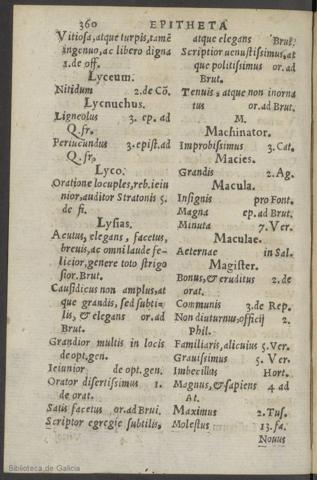 360 EPITHETA
Vitiosa, atque turpis, tamē
ingenuo, ac libero digna
1. de off.
Lyceum.
Nitidum 2. de Cō.
Lycnuchus.
Ligneolus 3. ep. ad
Q. fr.
Pertucundus 3. epist. ad
Q. fr.
Lyco.
Oratione locuples, reb. ieiu
nior, auditor Stratonis 5.
de fi.
Lysias.
Acutus, elegans, facetus,
breuis, ac omni laude fe-
licior, genere toto strigo
sior. Brut.
Causidicus non amplus, at
que grandis, sed subti-
lis, & elegans or. ad
Brut.
Grandior multis in locis
de opt. gen.
Ieiunior de opt. gen.
Orator disertissimus 1.
de orat.
Satis facetus or. ad Brut.
Scriptor egregie subtilis,
atque elegans Brut.
Scriptor uenustissimus, at
que politissimus or. ad
Brut.
Tenuis, atque non inorna
tus or. ad Brut.
M.
Machinator.
Improbissimus 3. Cat.
Macies.
Grandis 2. Ag.
Macula.
Insignis pro Font.
Magna ep. ad Brut.
Minuta 7. Ver.
Maculae.
Aeternae in Sal.
Magister.
Bonus, & eruditus 2. de
orat.
Communis 3. de Rep.
Non diuturnus, officij 2.
Phil.
Familiaris, alicuius 5. Ver.
Grauissimus 5. Ver.
Imbecillus Hort.
Magnus, & sapiens 4 ad
At.
Maximus 2. Tus.
Molestus 13. fa.
Nouus
Biblioteca de Galicia